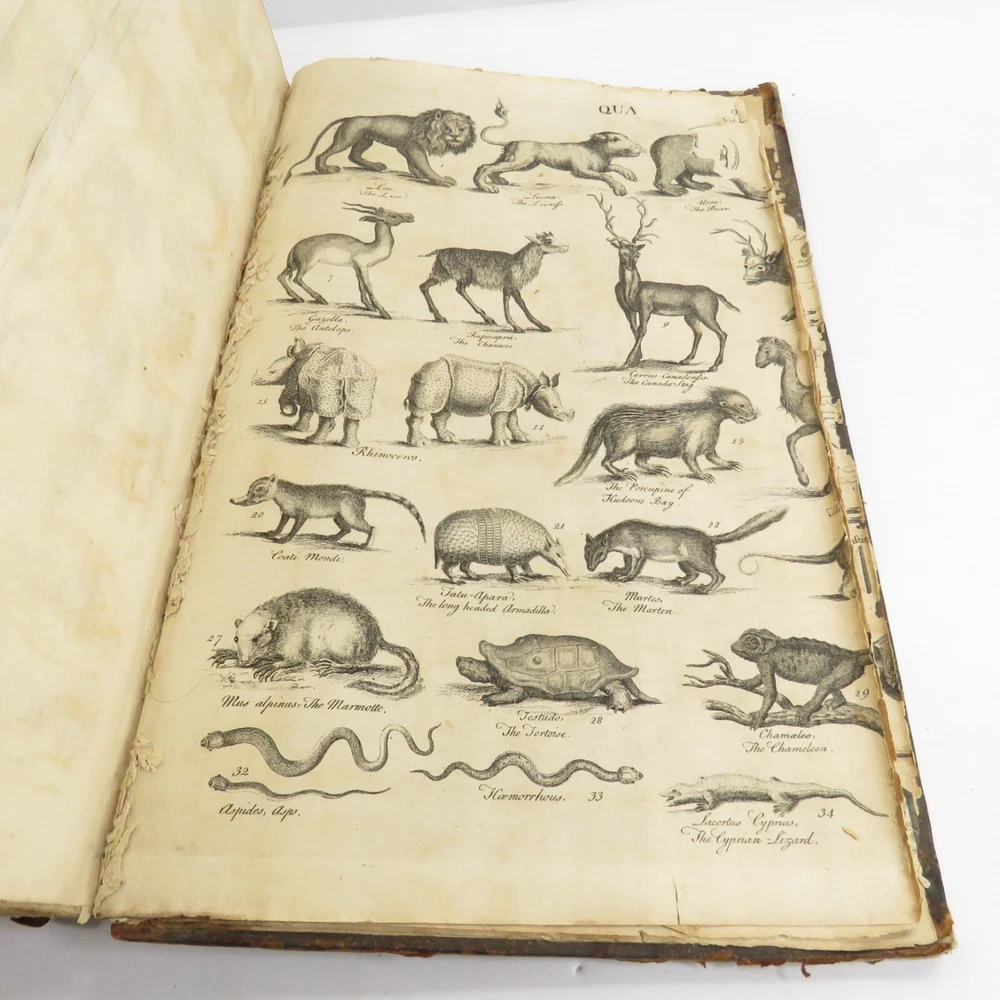 QUA
Vol.
Leo.
The Lion.
8
Leæna
The Lioness
Ursa.
The Bear
7
Gazella.
The Antelope.
Rupicapra.
The Chamois.
9
Cervus Canadensis.
The Canada Stag
13
14
Rhinoceros.
15
The Porcupine of
Hudsons Bay.
20
Coati Mondi.
21
Tatu-Apara,
The long headed Armadilla.
22
Martes,
The Marten.
27
Mus alpinus, The Marmotte.
Testudo, 28
The Tortoise.
29
Chamæleo,
The Chameleon.
32
Aspides, Asps.
Hæmorrhous. 33
34
Lacertus Cyprius,
The Cyprian-Lizard.